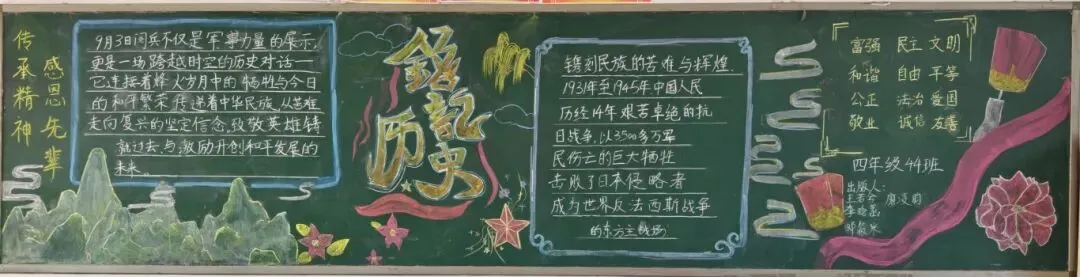 传承精神
感恩先辈
9月3日阅兵不仅是军事力量的展示,
更是一场跨越时空的历史对话一
它连接着烽火岁月中的牺牲与今日
的和平繁荣传递着中华民族从苦难
走向复兴的坚定信念,致敬英雄铸
就过去,与激励开创和平发展的
未来。
铭记
历史
镌刻民族的苦难与辉煌
1931年至1945年中国人民
历经14年艰苦卓绝的抗
日战争,以3500多万军
民伤亡的巨大牺牲
击败了日本侵略者
成为世界反法西斯战争
的东方主战场
富强 民主 文明
和谐 自由 平等
公正 法治 爱国
敬业 诚信 友善
四年级44班
出版人: